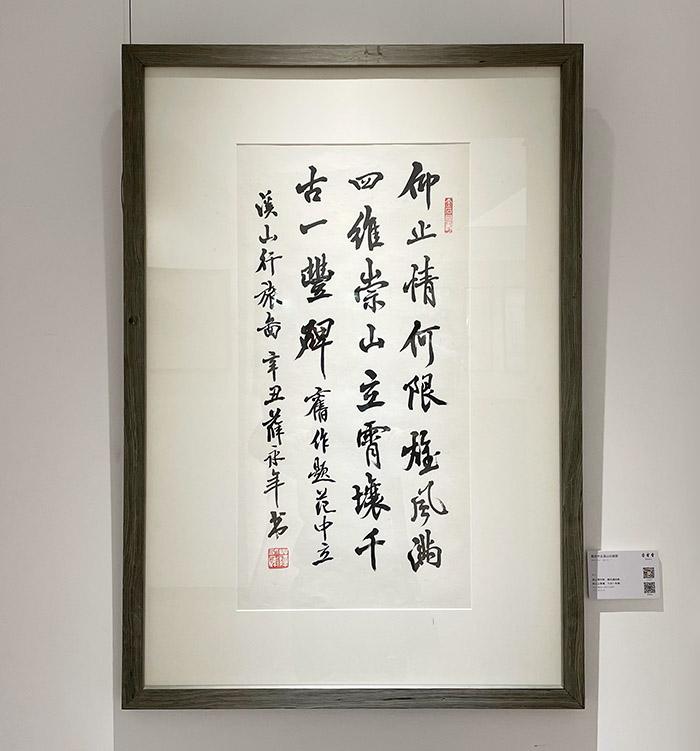 仰止情何限雄风满
四维崇山立霄壤千
古一豐碑 舊作题范中立
溪山行旅图 辛丑薛永年书